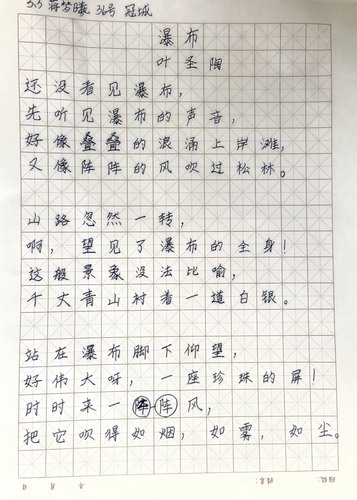 3.3 蒋梦曦 36号 冠城
瀑布
叶圣陶
还没看见瀑布，
先听见瀑布的声音，
好像叠叠的浪涌上岸滩，
又像阵阵的风吹过松林。
山路忽然一转，
啊，望见了瀑布的全身！
这般景象没法比喻，
千丈青山衬着一道白银。
站在瀑布脚下仰望，
好伟大呀，一座珍珠的屏！
时时来一阵阵风，
把它吹得如烟，如雾，如尘。